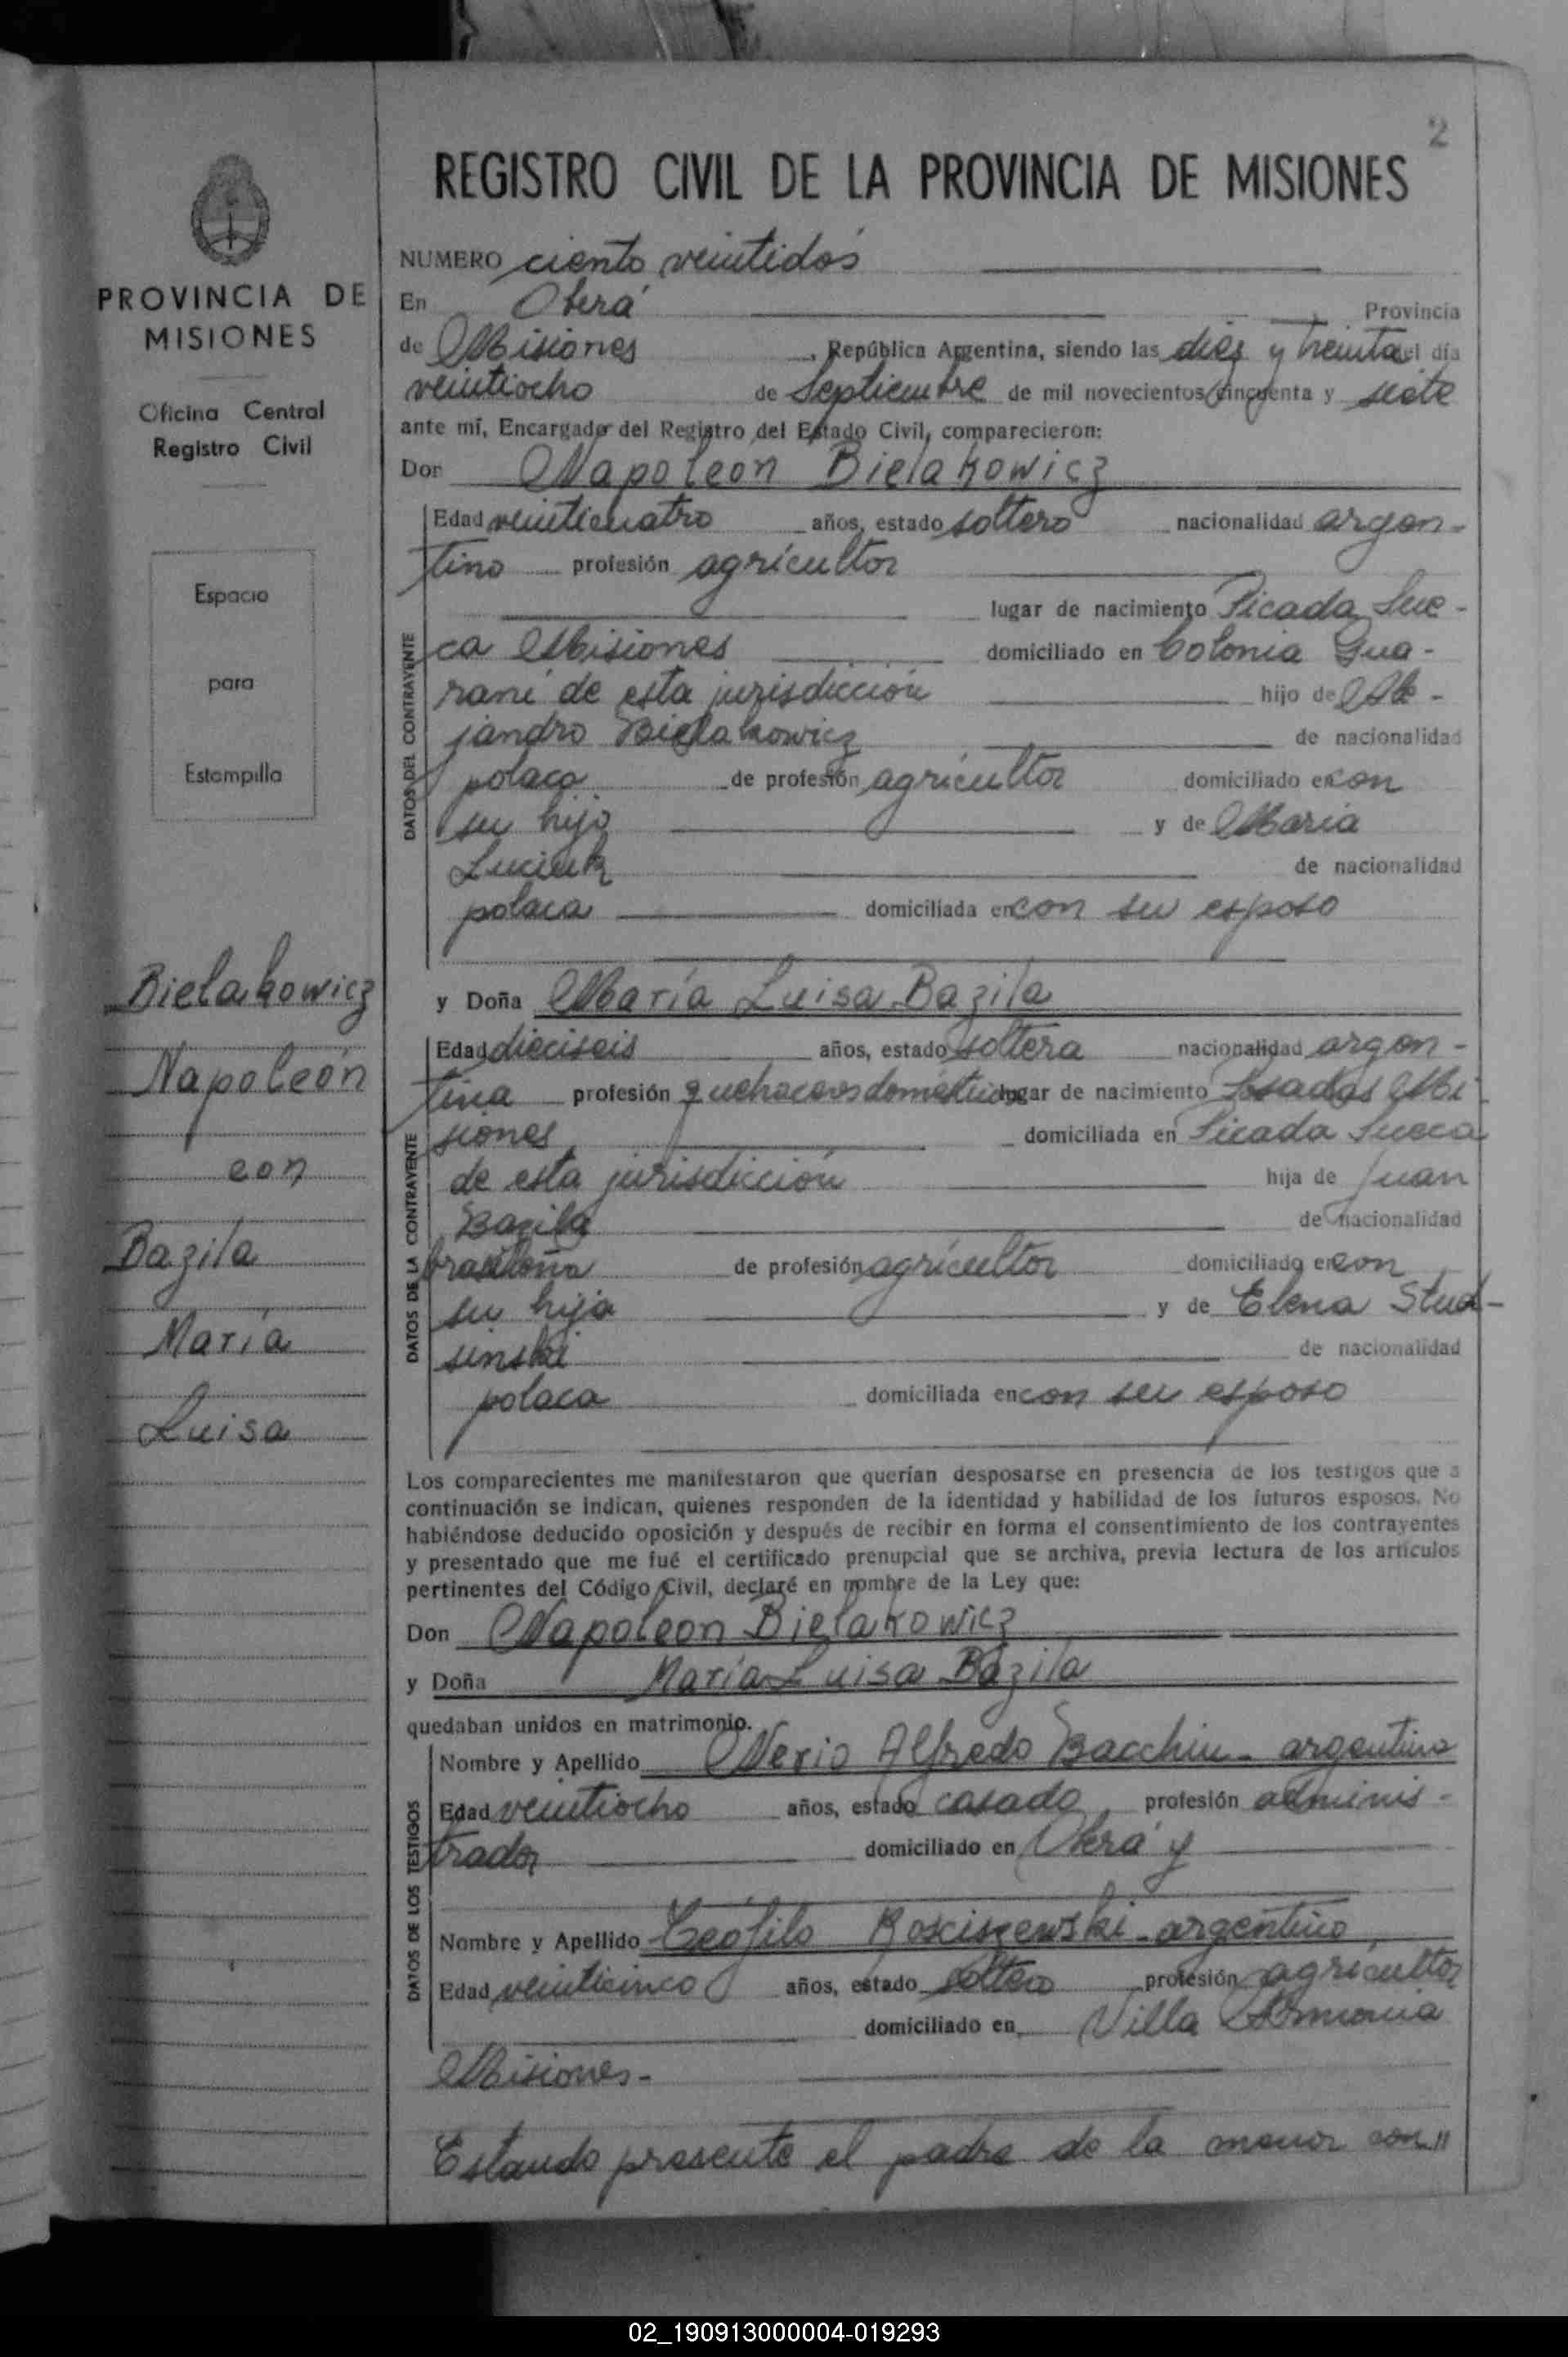 2
REGISTRO CIVIL DE LA PROVINCIA DE MISIONES
PROVINCIA DE
MISIONES
Oficina Central
Registro Civil
Espacio
para
Estampilla
Bielakowicz
Napoleón
con
Bazila
María
Luisa
NUMERO ciento veintidós
En Oberá Provincia
de Misiones, República Argentina, siendo las diez y treinta el día
veintiocho de Septiembre de mil novecientos cincuenta y siete
ante mí, Encargado del Registro del Estado Civil, comparecieron:
Don Napoleón Bielakowicz
DATOS DEL CONTRAYENTE
Edad veinticuatro años, estado soltero nacionalidad argen-
tino profesión agricultor
lugar de nacimiento Picada Sue-
ca Misiones domiciliado en Colonia Gua-
raní de esta jurisdicción hijo de Ale-
jandro Bielakowicz de nacionalidad
polaca de profesión agricultor domiciliado en con
su hijo y de María
Luciuk de nacionalidad
polaca domiciliada en con su esposo
y Doña María Luisa Bazila
DATOS DE LA CONTRAYENTE
Edad dieciseis años, estado soltera nacionalidad argen-
tina profesión quehaceres domésticos lugar de nacimiento Posadas Mi
siones domiciliada en Picada Sueca
de esta jurisdicción hija de Juan
Bazila de nacionalidad
brasileña de profesión agricultor domiciliado en con
su hija y de Elena Stud-
sinski de nacionalidad
polaca domiciliada en con su esposo
Los comparecientes me manifestaron que querían desposarse en presencia de los testigos que a
continuación se indican, quienes responden de la identidad y habilidad de los futuros esposos. No
habiéndose deducido oposición y después de recibir en forma el consentimiento de los contrayentes
y presentado que me fué el certificado prenupcial que se archiva, previa lectura de los artículos
pertinentes del Código Civil, declaré en nombre de la Ley que:
Don Napoleon Bielakowicz
y Doña María Luisa Bazila
quedaban unidos en matrimonio.
DATOS DE LOS TESTIGOS
Nombre y Apellido Nerio Alfredo Bacchiu - argentino
Edad veintiocho años, estado casado, profesión adminis-
trador domiciliado en Oberá y
Nombre y Apellido Teófilo Rosciszewski - argentino
Edad veinticinco años, estado soltero profesión agricultor
domiciliado en Villa Armonia
Misiones.-
Estando presente el padre de la menor con"
02_190913000004-019293